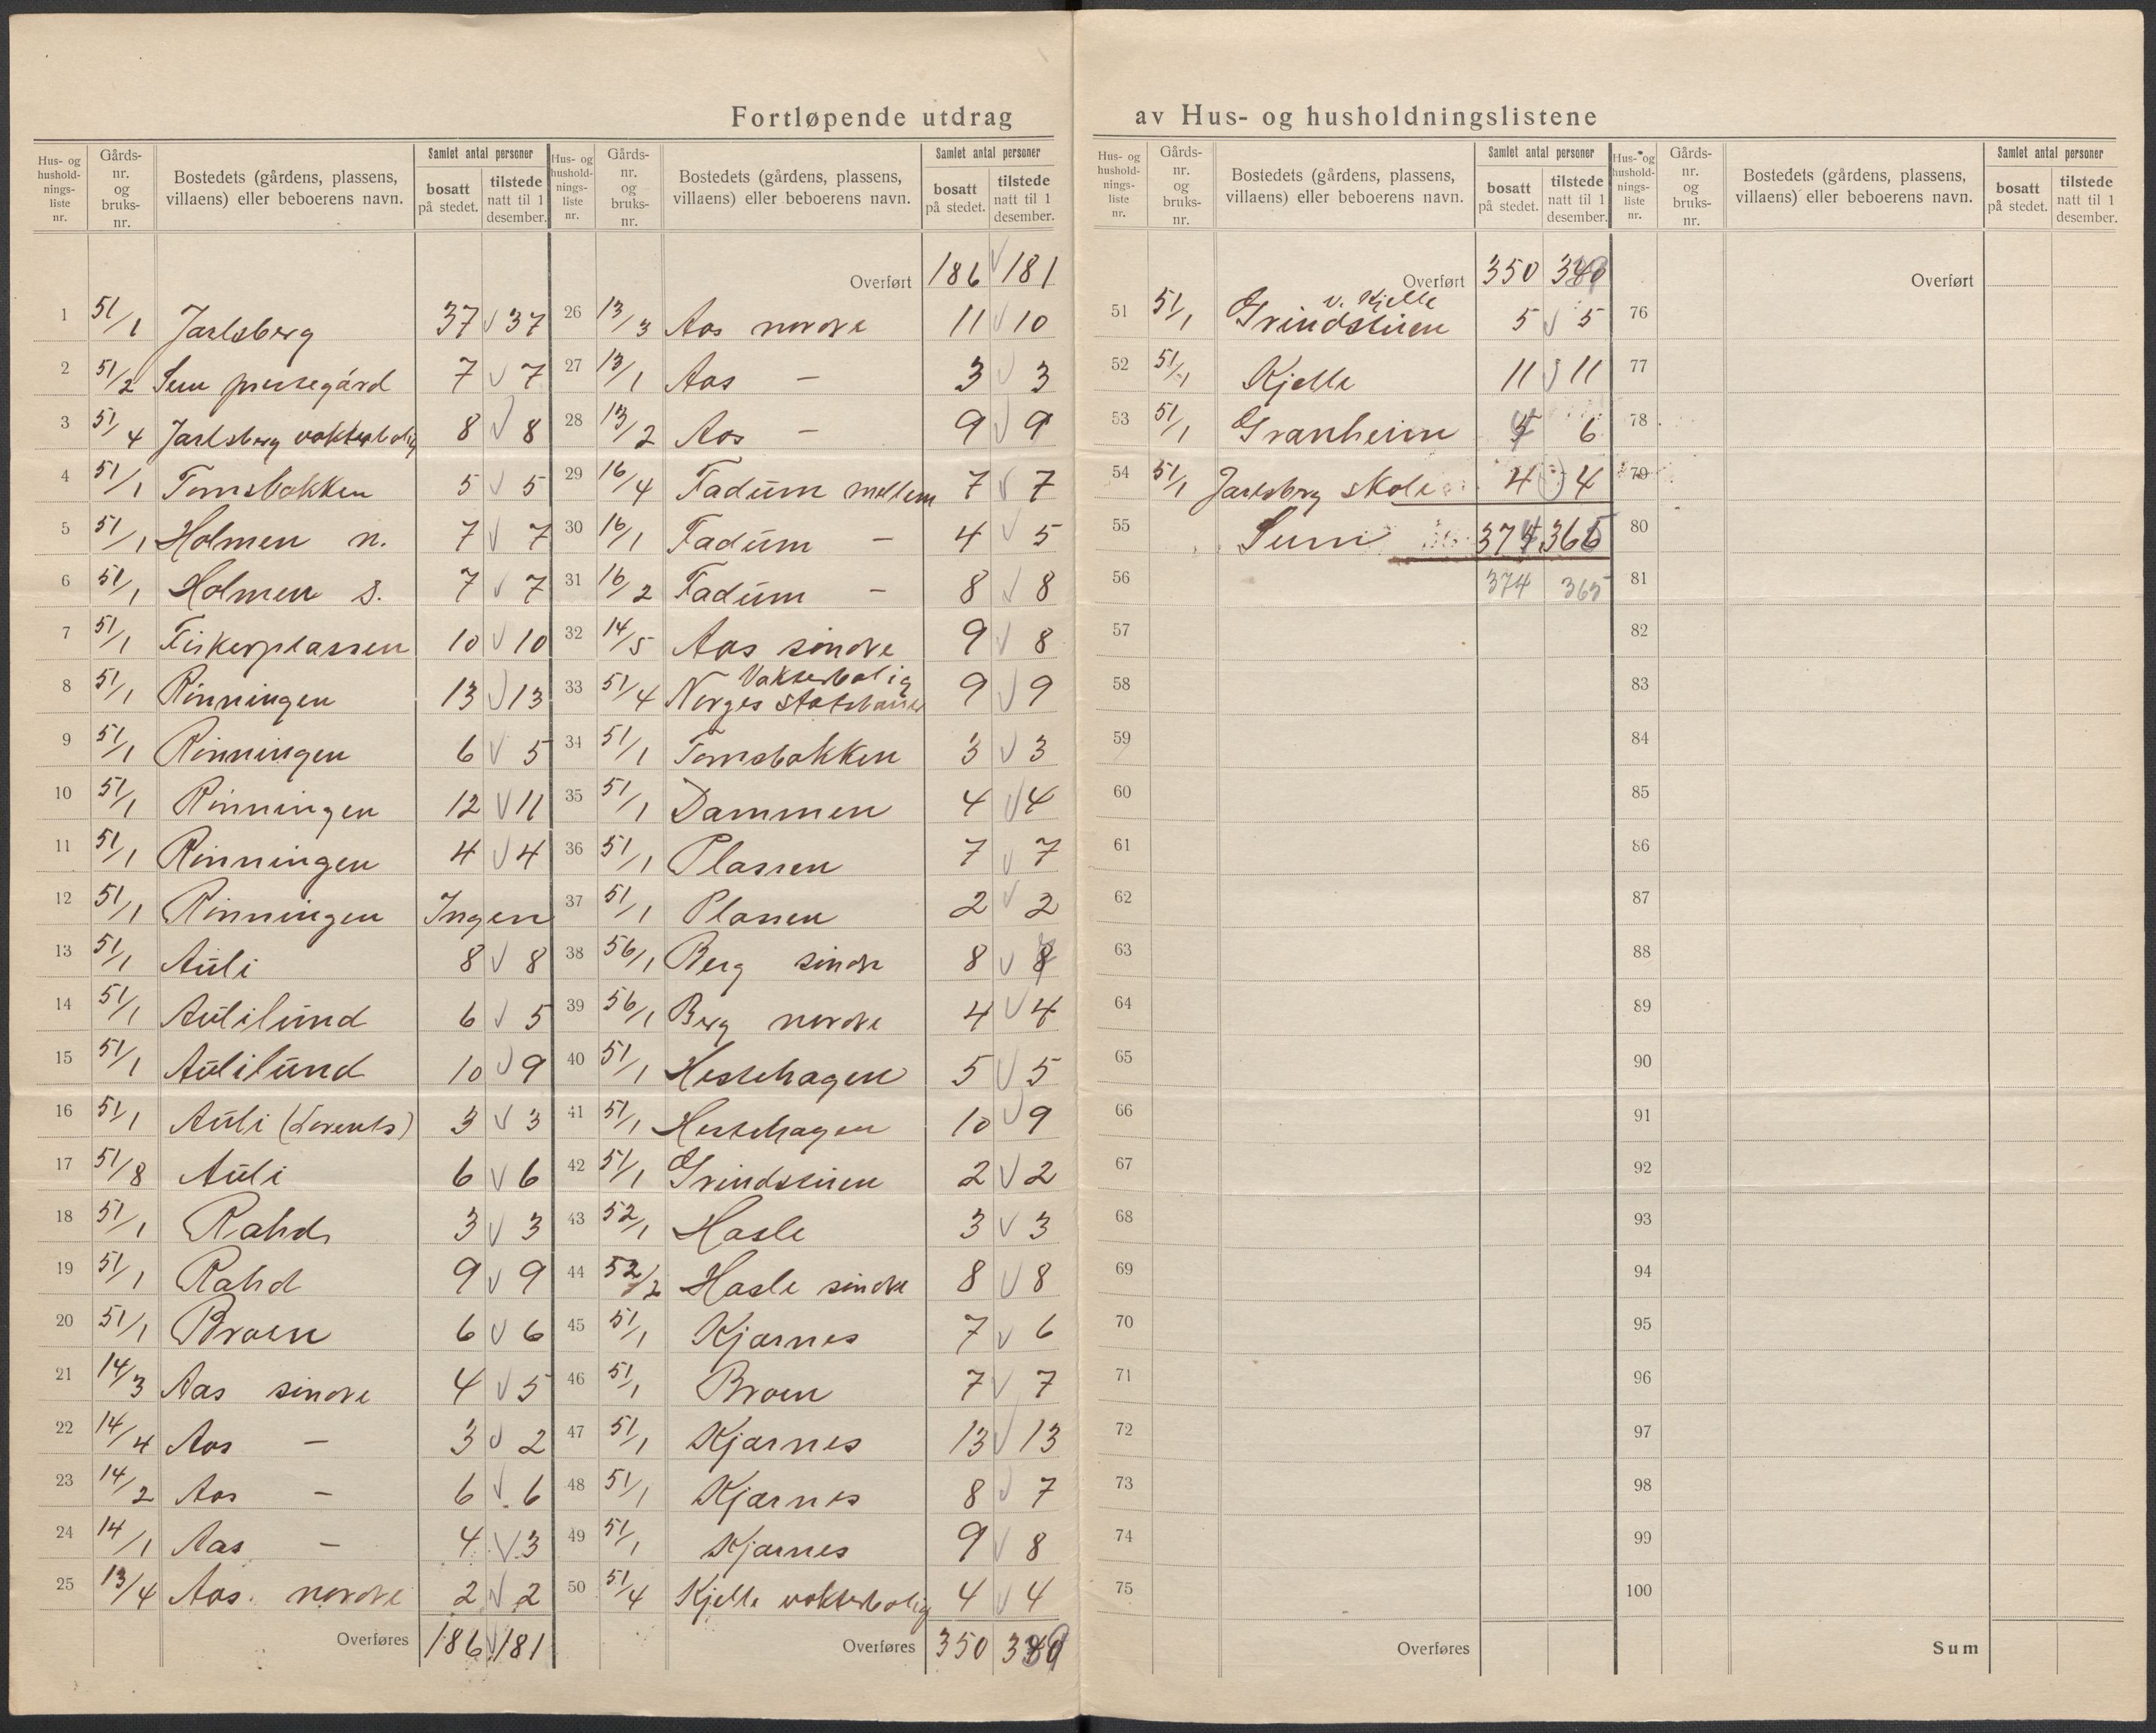 Fortløpende utdrag av Hus- og husholdningslistene
Hus- og hushold-nings-liste nr. Gårds-nr. og bruks-nr. Bostedets (gårdens, plassens, villaens) eller beboerens navn. Samlet antal personer bosatt på stedet. tilstede natt til 1 desember.
1 51/1 Jarlsberg 37 37
2 51/2 Sem prestegård 7 7
3 51/4 Jarlsberg vokterbolig 8 8
4 51/1 Tomsbakken 5 5
5 51/1 Holmen n. 7 7
6 51/1 Holmen s. 7 7
7 51/1 Fiskerplassen 10 10
8 51/1 Rønningen 13 13
9 51/1 Rønningen 6 5
10 51/1 Rønningen 12 11
11 51/1 Rønningen 4 4
12 51/1 Rønningen Ingen
13 51/1 Auli 8 8
14 51/1 Aulilund 6 5
15 51/1 Aulilund 10 9
16 51/1 Auli (Lorents) 3 3
17 51/8 Auli 6 6
18 51/1 Råhd 3 3
19 51/1 Råhd 9 9
20 51/1 Broen 6 6
21 14/3 Aas søndre 4 5
22 14/4 Aas — 3 2
23 14/2 Aas — 6 6
24 14/1 Aas — 4 3
25 13/4 Aas nordre 2 2
Overføres 186 181
Hus- og hushold-nings-liste nr. Gårds-nr. og bruks-nr. Bostedets (gårdens, plassens, villaens) eller beboerens navn. Samlet antal personer bosatt på stedet. tilstede natt til 1 desember.
Overført 186 181
26 13/3 Aas nordre 11 10
27 13/1 Aas — 3 3
28 13/2 Aas — 9 9
29 16/4 Fadum mellem 7 7
30 16/1 Fadum — 4 5
31 16/2 Fadum — 8 8
32 14/5 Aas søndre 9 8
33 51/4 Vokterbolig Norges Statsbaner 9 9
34 51/1 Tomsbakken 3 3
35 51/1 Dammen 4 4
36 51/1 Plassen 7 7
37 51/1 Plassen 2 2
38 56/1 Berg søndre 8
39 56/1 Berg nordre 4 4
40 51/1 Hestehagen 5 5
41 51/1 Hestehagen 10 9
42 51/1 Grindstuen 2 2
43 52/1 Hasle 3 3
44 52/2 Hasle søndre 8 8
45 51/1 Kjærnes 7 6
46 51/1 Broen 7 7
47 51/1 Kjærnes 13 13
48 51/1 Kjærnes 8 7
49 51/1 Kjærnes 9 8
50 51/4 Kjelle vokterbolig 4 4
Overføres 350
Hus- og hushold-nings-liste nr. Gårds-nr. og bruks-nr. Bostedets (gårdens, plassens, villaens) eller beboerens navn. Samlet antal personer bosatt på stedet. tilstede natt til 1 desember.
Overført 350
51 51/1 Grindstuen v. Kjelle 5 5
52 51/1 Kjelle 11 11
53 51/1 Granheim 6
54 51/1 Jarlsberg skole 4 4
55 Sum
56 374 365
57
58
59
60
61
62
63
64
65
66
67
68
69
70
71
72
73
74
75
Overføres
Hus- og hushold-nings-liste nr. Gårds-nr. og bruks-nr. Bostedets (gårdens, plassens, villaens) eller beboerens navn. Samlet antal personer bosatt på stedet. tilstede natt til 1 desember.
Overført
76
77
78
79
80
81
82
83
84
85
86
87
88
89
90
91
92
93
94
95
96
97
98
99
100
Sum